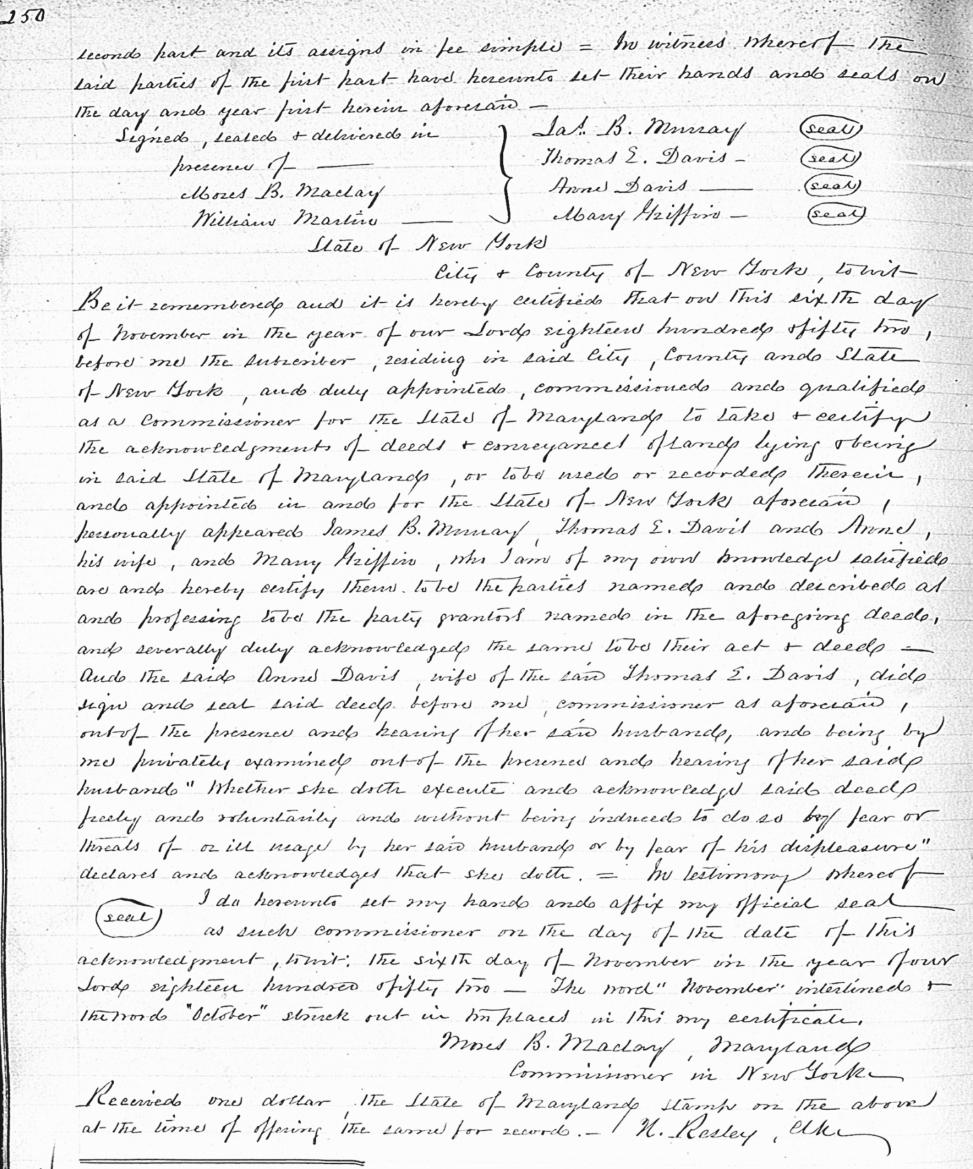 250
second part and its assigns in fee simple = In witness whereof the
said parties of the first part have hereunto set their hands and seals on
the day and year first herein aforesaid —
Signed, sealed & delivered in
presence of —
Moses B. Maclay
William Martin —
Jas. B. Murray (seal)
Thomas E. Davis — (seal)
Anne Davis — (seal)
Mary Griffin — (seal)
State of New York
City & County of New York, towit
Be it remembered and it is hereby certified that on this sixth day
of November in the year of our Lord eighteen hundred & fifty two,
before me the subscriber, residing in said City, County and State
of New York, and duly appointed, commissioned and qualified
as a Commissioner for the State of Maryland to take & certify
the acknowledgments of deeds & conveyances of land lying & being
in said State of Maryland, or to be used or recorded therein,
and appointed in and for the State of New York aforesaid,
personally appeared James B. Murray, Thomas E. Davis and Anne,
his wife, and Mary Griffin, who I am of my own knowledge satisfied
are and hereby certify them to be the parties named and described as
and professing to be the party grantors named in the aforegoing deed,
and severally duly acknowledged the same to be their act & deed =
And the said Anne Davis, wife of the said Thomas E. Davis, did
sign and seal said deed before me, commissioner as aforesaid,
out of the presence and hearing of her said husband, and being by
me privately examined out of the presence and hearing of her said
husband "Whether she doth execute and acknowledge said deed
freely and voluntarily and without being induced to do so by fear or
threats of or ill usage by her said husband or by fear of his displeasure"
declares and acknowledges that she doth. = In testimony whereof
(seal) I do hereunto set my hand and affix my official seal
as such commissioner on the day of the date of this
acknowledgment, towit: the sixth day of November in the year of our
Lord eighteen hundred & fifty two — The word "November" interlined &
the word "October" struck out in two places in this my certificate.
Moses B. Maclay, Maryland
Commissioner in New York
Received one dollar, the State of Maryland stamp on the above
at the time of offering the same for record. — H. Resley, Clk